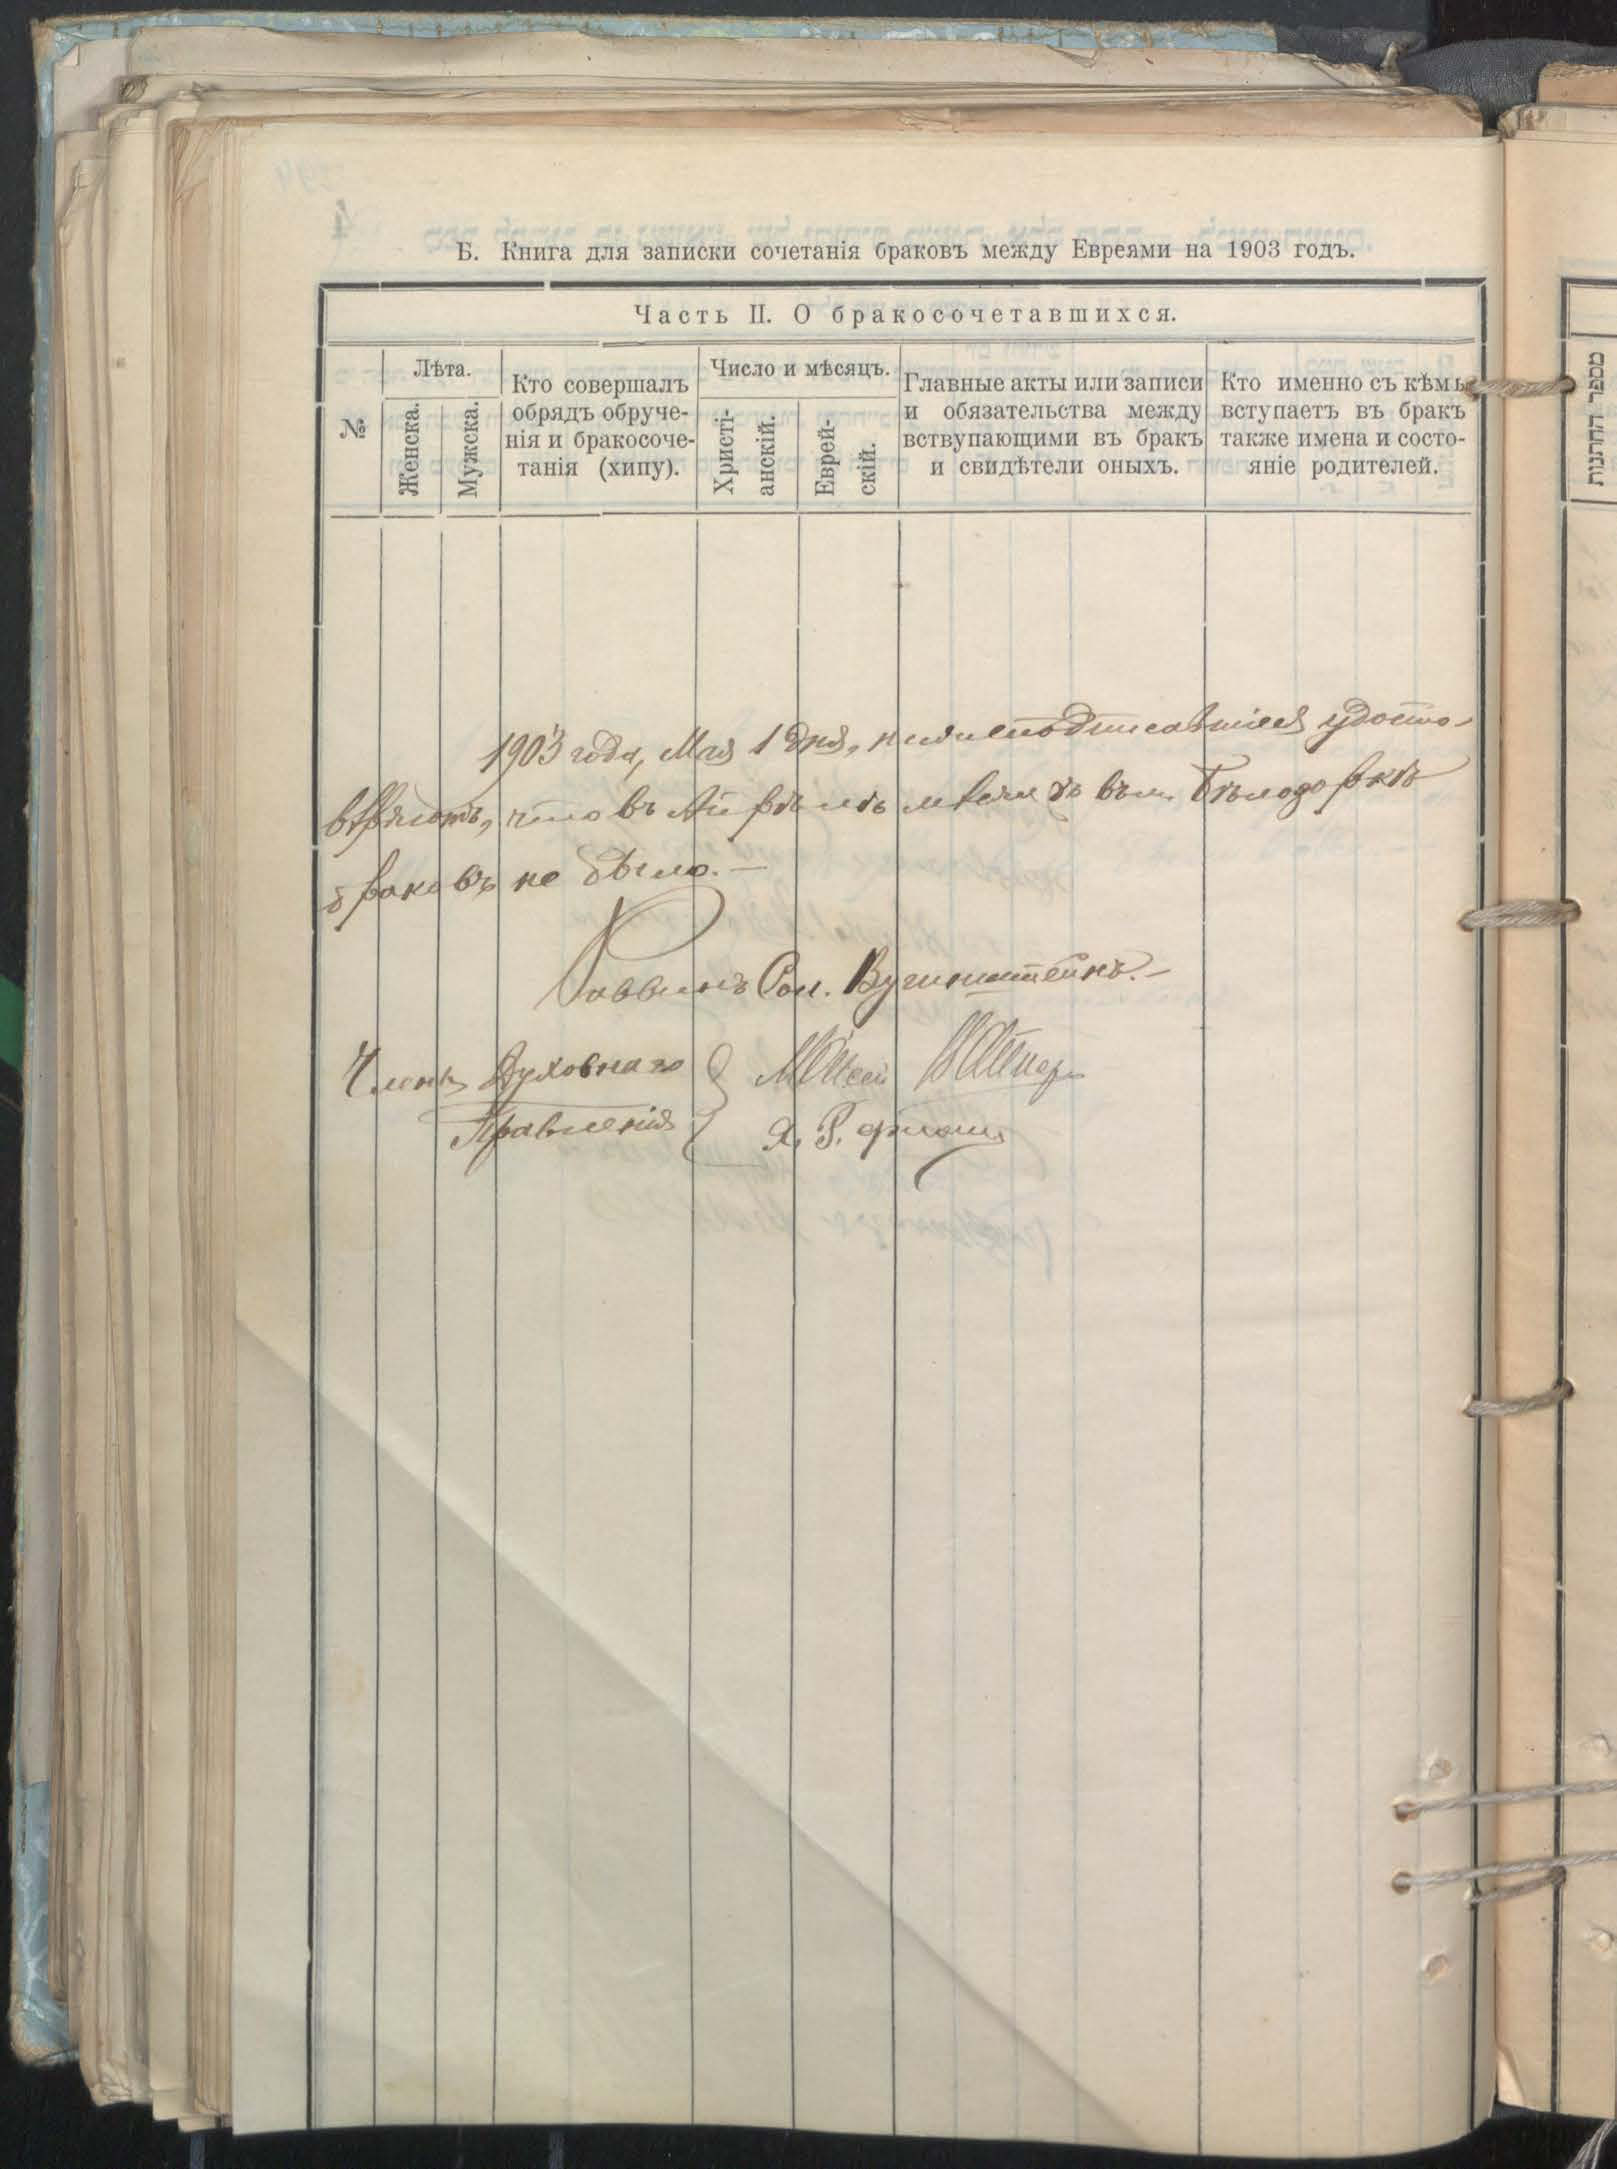 Б. Книга для записки сочетанія браковъ между Евреями на 1903 годъ.
Часть II. О бракосочетавшихся.
№
Лѣта.
Женска.
Мужска.
Кто совершалъ
обрядъ обруче-
нія и бракосоче-
танія (хипу).
Число и мѣсяцъ.
Христі-
анскій.
Еврей-
скій.
Главные акты или записи
и обязательства между
вствупающими въ бракъ
и свидѣтели оныхъ.
Кто именно съ кѣмъ
вступаетъ въ бракъ
также имена и состо-
яніе родителей.
1903 года, Мая 1 дня, нижеподписавшіеся удосто-
вѣряютъ, что въ Апрѣлѣ мѣсяцѣ въ м. Бѣлозоркѣ
браковъ не было.—
Раввинъ Сол. Вугинштейнъ.—
Члены Духовнаго
Правленія
Х. Р.
מספר החתונות